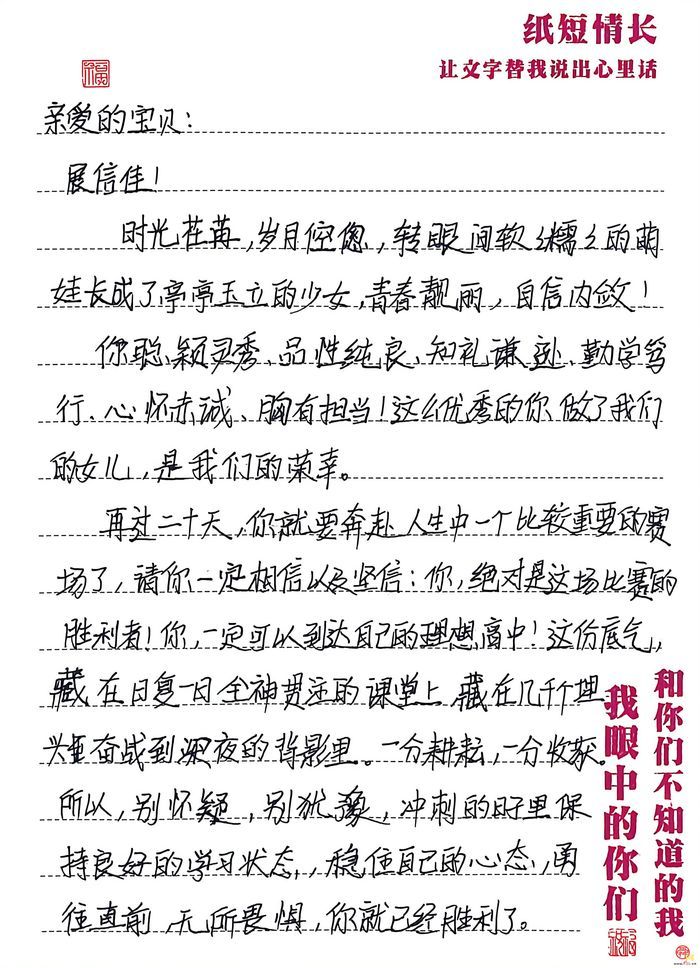 纸短情长
让文字替我说出心里话
福
亲爱的宝贝：
展信佳！
时光荏苒，岁月倥偬，转眼间软糯糯的萌
娃长成了亭亭玉立的少女，青春靓丽，自信内敛！
你聪颖灵秀、品性纯良、知礼谦逊、勤学笃
行、心怀赤诚、胸有担当！这么优秀的你做了我们
的女儿，是我们的荣幸。
再过二十天，你就要奔赴人生中一个比较重要的赛
场了，请你一定相信以及坚信：你，绝对是这场比赛的
胜利者！你，一定可以到达自己的理想高中！这份底气，
藏在日复一日全神贯注的课堂上，藏在几千个埋
头奋战到深夜的背影里。一分耕耘，一分收获。
所以，别怀疑，别犹豫，冲刺的日子里保
持良好的学习状态，稳住自己的心态，勇
往直前，无所畏惧，你就已经胜利了。
和你们不知道的我
我眼中的你们